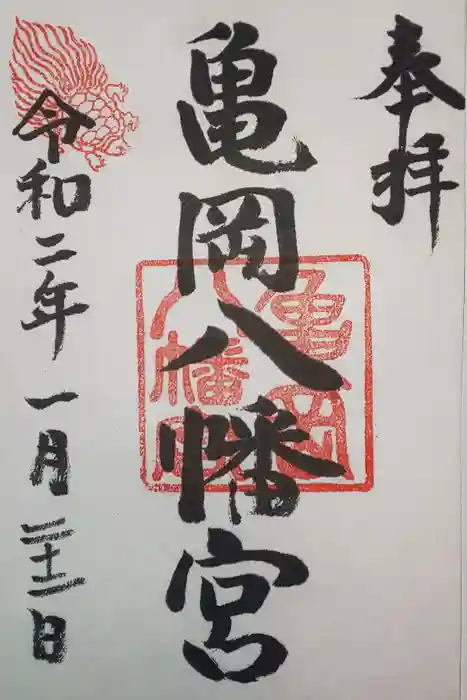 奉拝
亀岡八幡宮
亀岡
八幡宮
令和二年 一月 二十二日